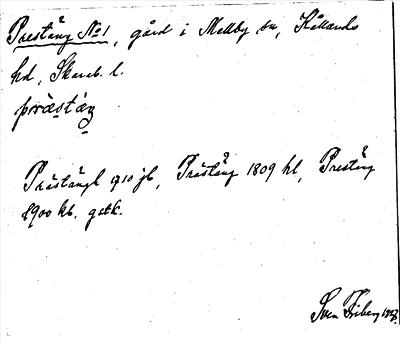 Preståنg No 1, gård i Mellby sn, Kållands
hd, Skarab. l.
præstáŋ
Prästängh 1710 jb, Prästång 1809 hl, Prestång
1900 kb. gstk.
Sven Friberg 1927.